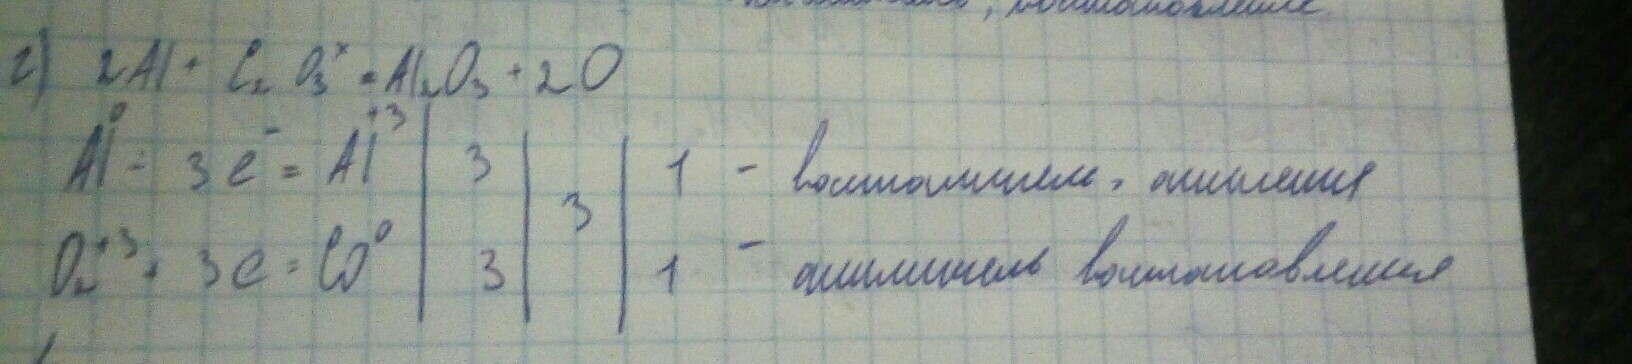 восстановление.
г) 2Al + C₂ O₃ˣ = Al₂O₃ + 2O
Al⁰ - 3e⁻ = Al⁺³ | 3 | | 1 - восстановитель, окисления
3
O₂⁺³ + 3e = CO⁰ | 3 | | 1 - окислитель восстановления